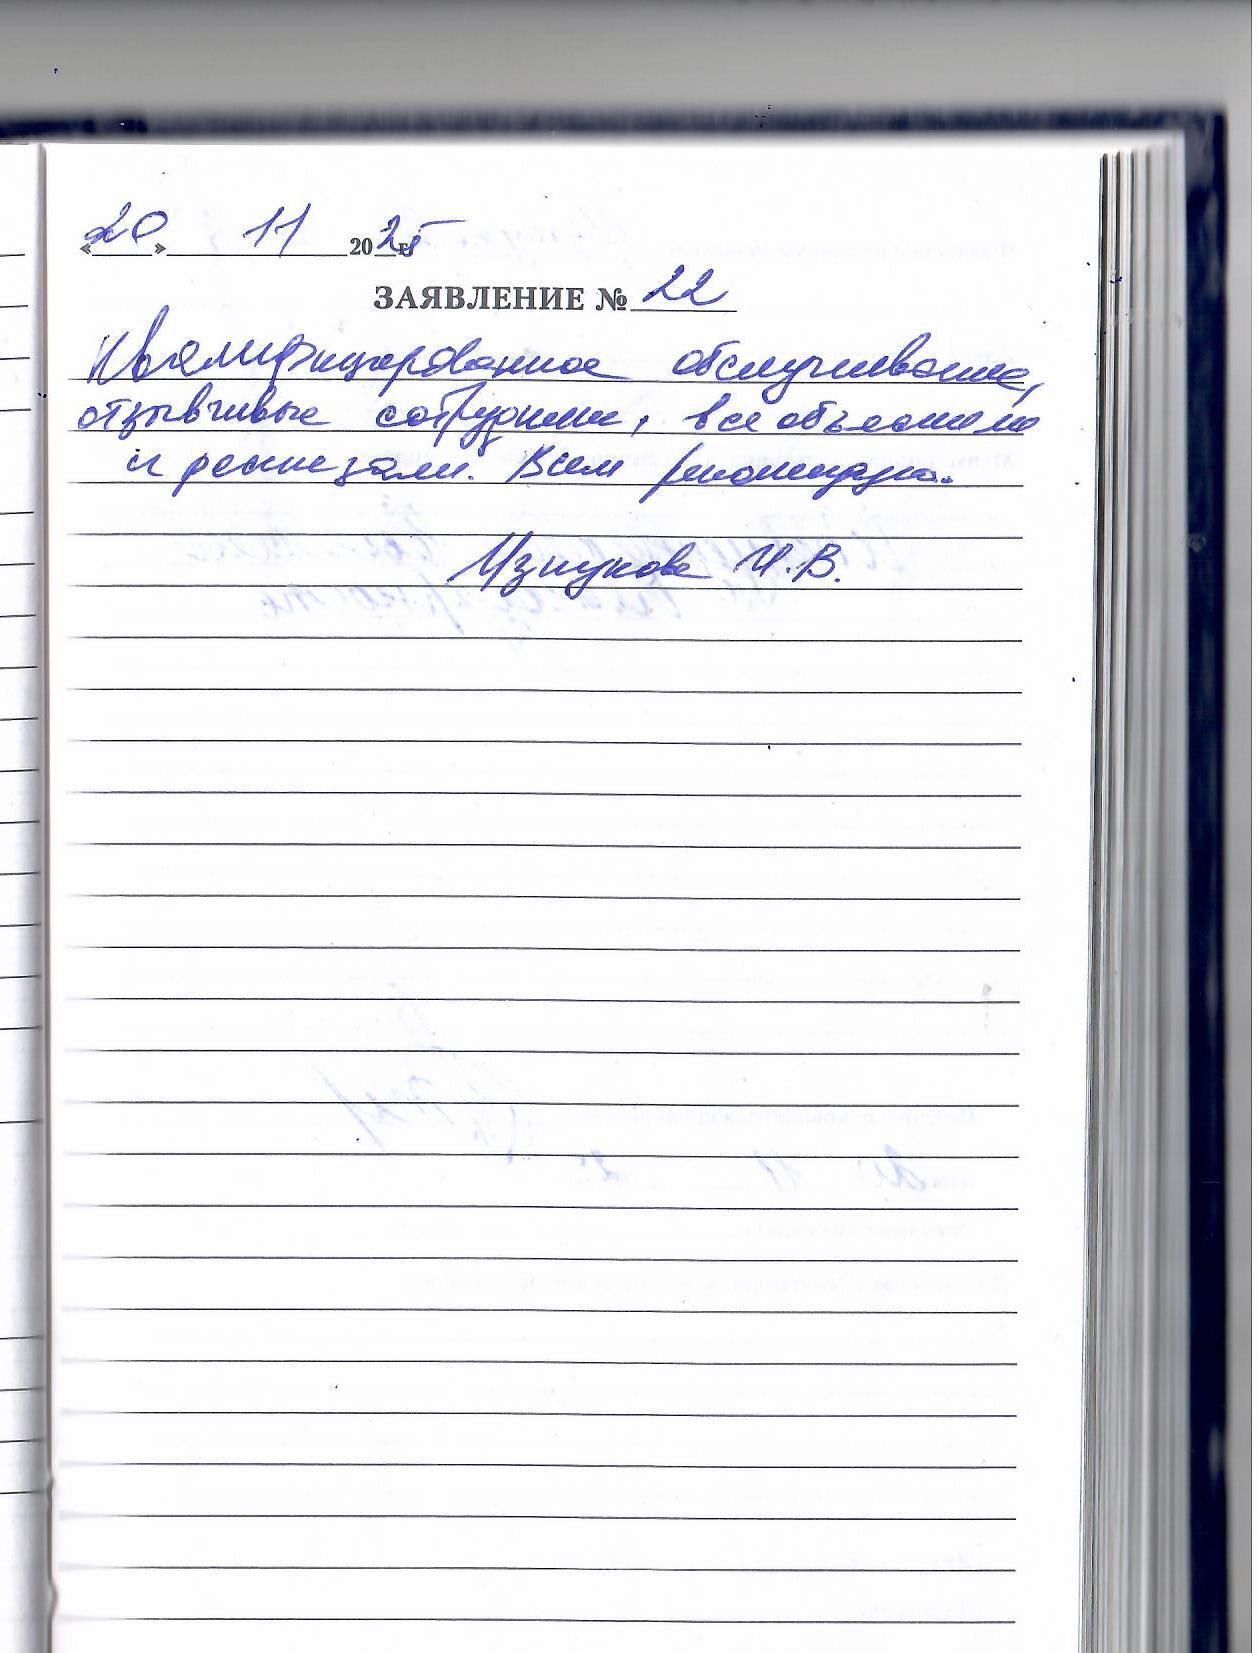 «20» 11 2025 г.
ЗАЯВЛЕНИЕ № 22
Квалифицированное обслуживание,
отзывчивые сотрудники, все объяснили
и рассказали. Всем рекомендую.
И.В.